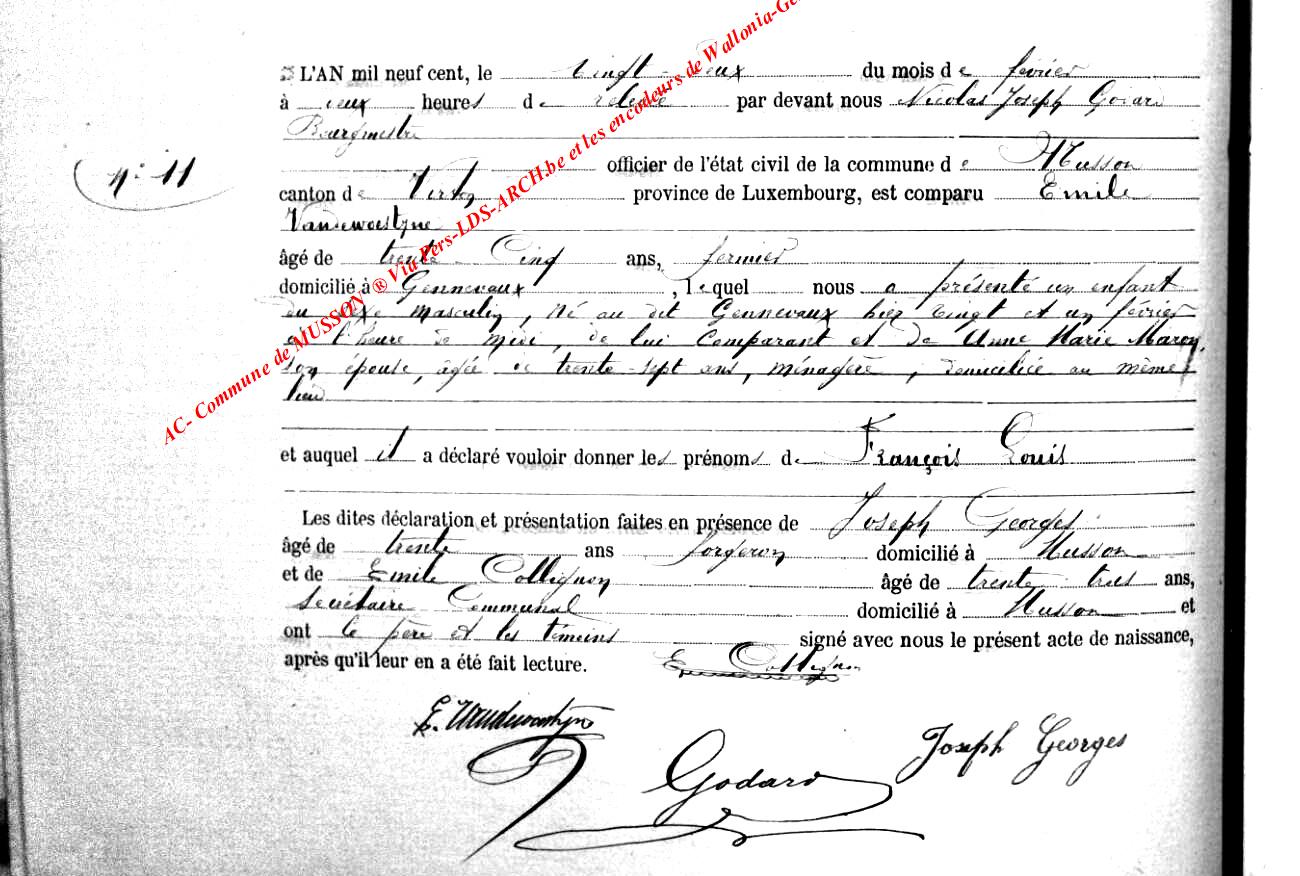 L'AN mil neuf cent, le vingt-deux du mois de février
à deux heures de relevée par devant nous Nicolas Joseph Godard
Bourgmestre
officier de l'état civil de la commune de Musson
N° 11
canton de Virton province de Luxembourg, est comparu Emile
Vandewoestyne
âgé de trente-cinq ans, fermier
domicilié à Gennevaux, lequel nous a présenté un enfant
du sexe masculin, né au dit Gennevaux hier vingt et un février
à l'heure de midi, de lui comparant et de Anne Marie
son épouse, âgée de trente-sept ans, ménagère, domiciliée au même
lieu
et auquel il a déclaré vouloir donner les prénoms de François Louis
Les dites déclaration et présentation faites en présence de Joseph Georges
âgé de trente ans forgeron domicilié à Musson
et de Emile Collignon âgé de trente trois ans,
secrétaire communal domicilié à Musson et
ont le père et les témoins signé avec nous le présent acte de naissance,
après qu'il leur en a été fait lecture. E Collignon
E. Vandewoestyne
Joseph Georges
Godard
AC- Commune de MUSSON ® Via Pers-LDS-ARCH.be et les encodeurs de Wallonia-Ge